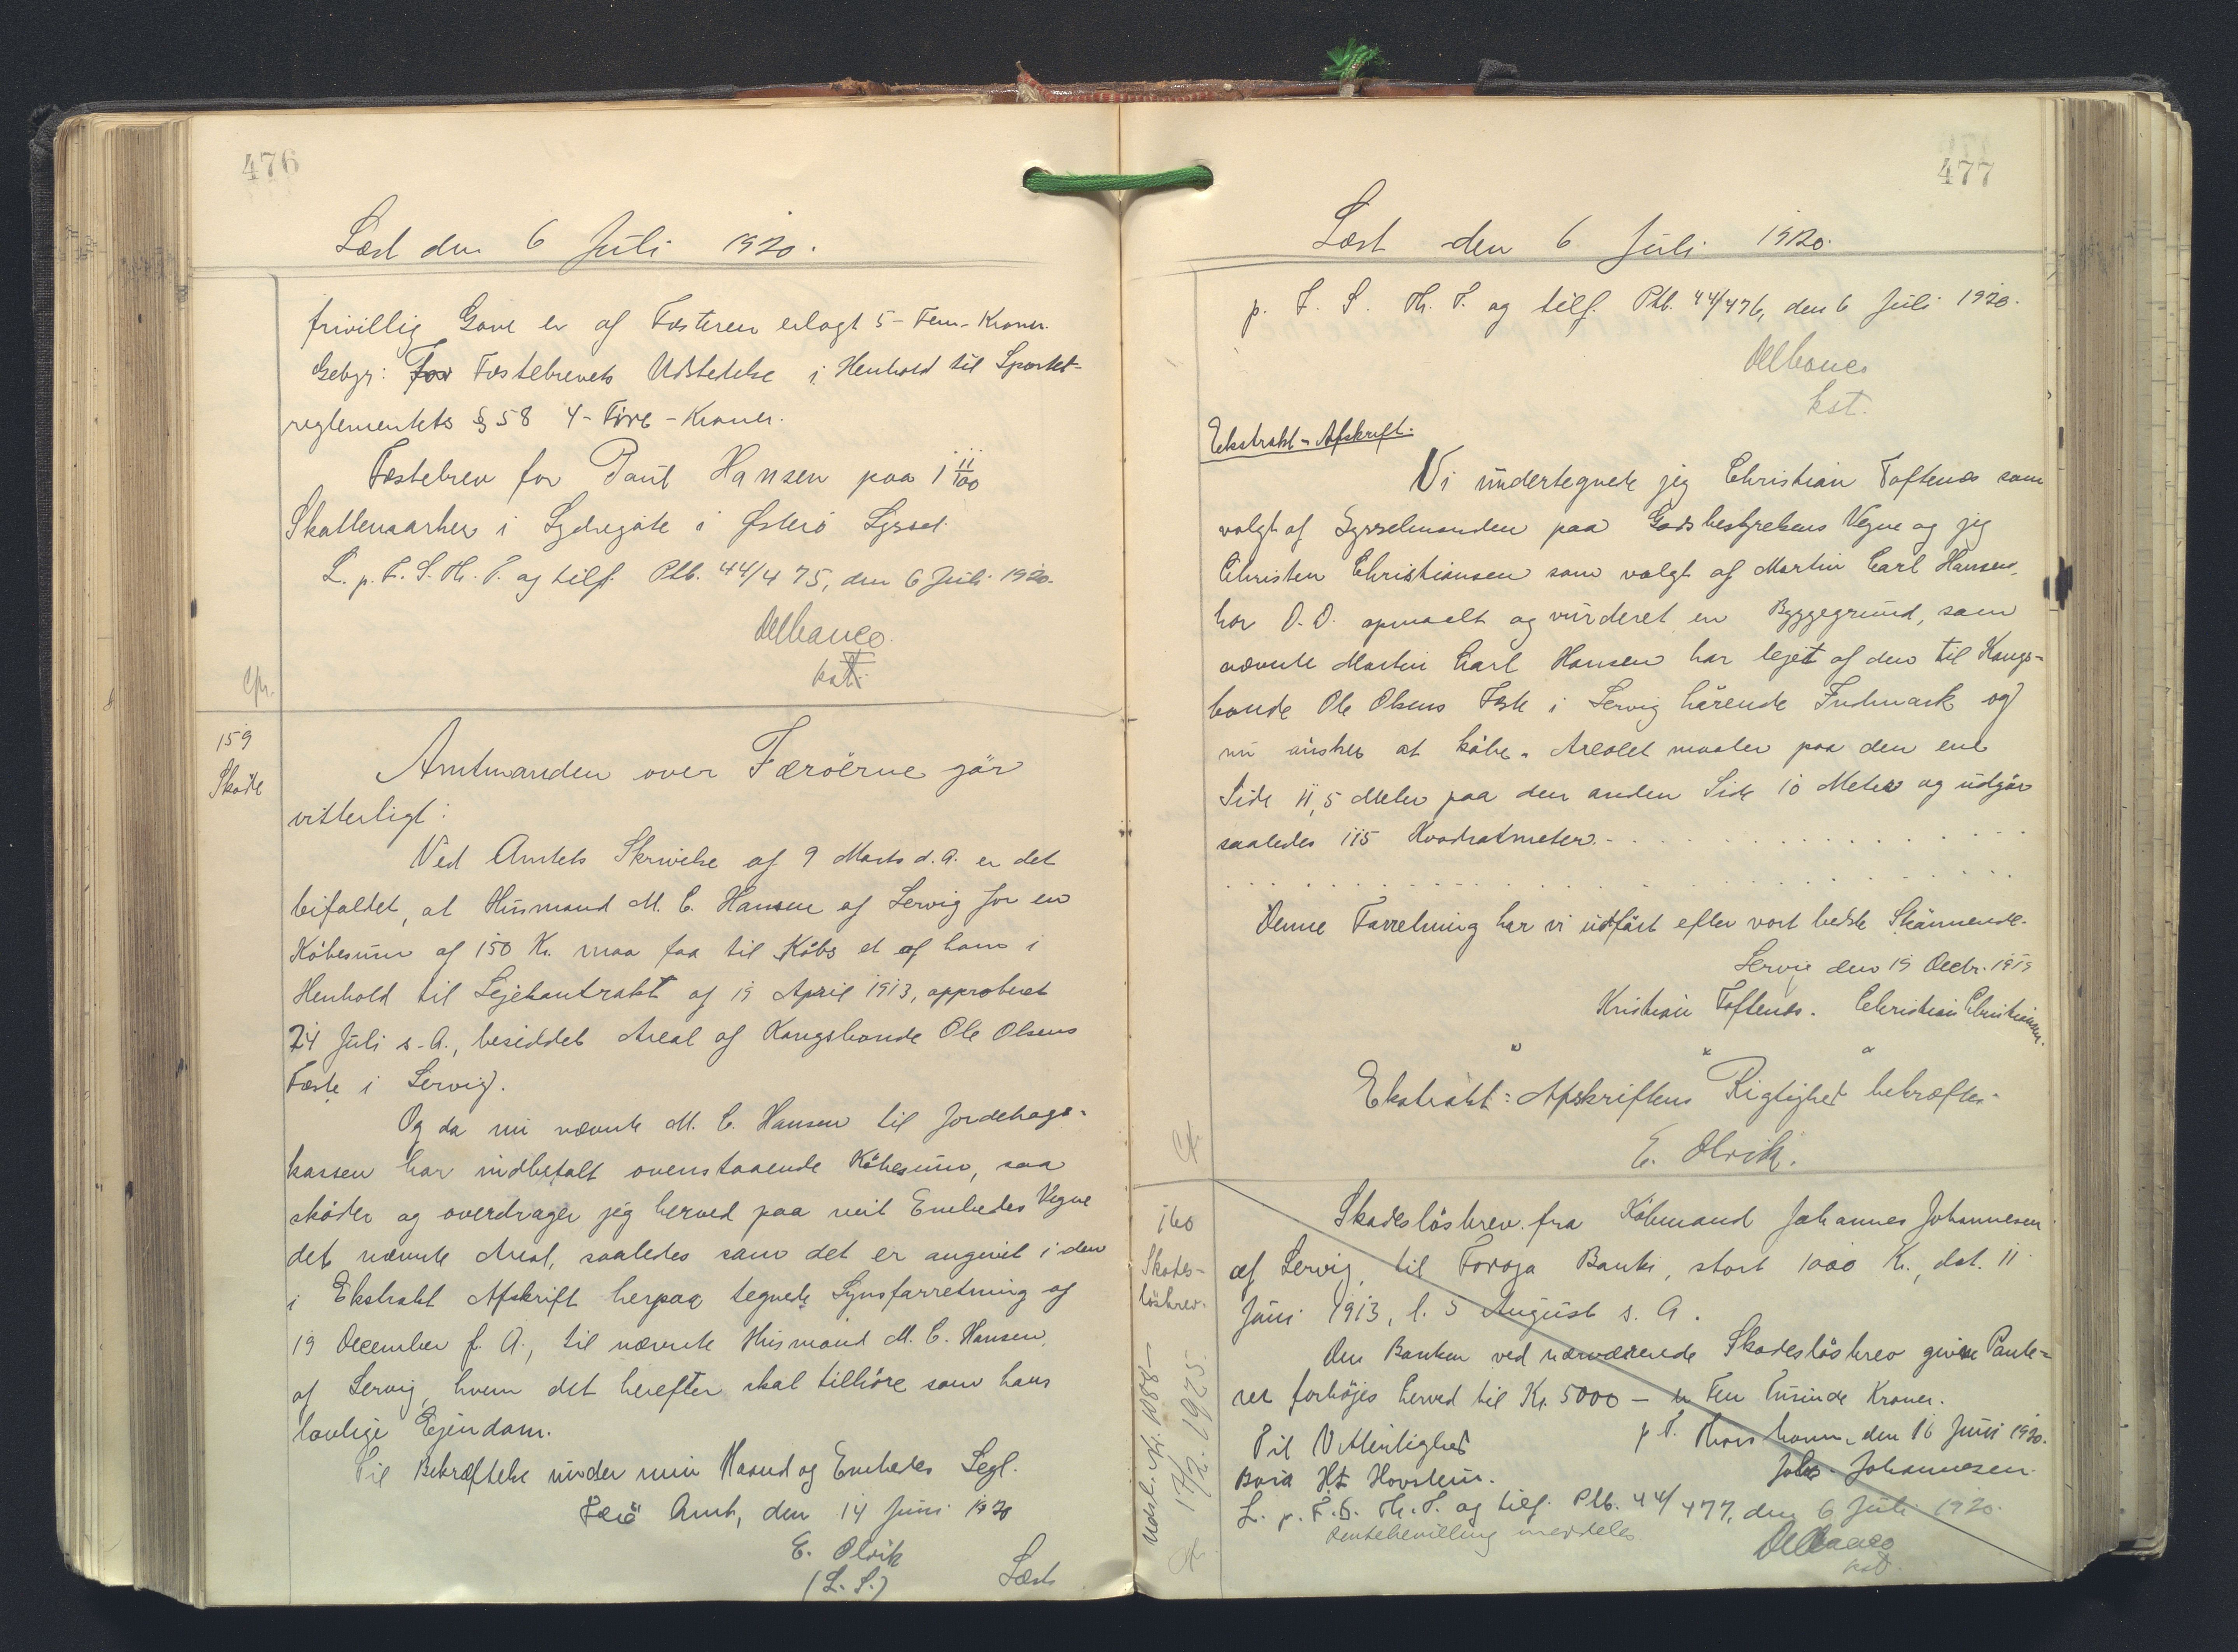 476
Læst den 6 Juli 1920.
frivillig Gave er af Fæsteren erlagt 5 - Fem - Kroner.
Gebyr: For Fæstebrevets Udstedelse i Henhold til Sportel-
reglementets § 58 4 - Fire - Kroner.
Fæstebrev for Paul Hansen paa 1 11/100
Skattemarker i Sydregøte i Østerö Syssel.
L. p. F. S. Th. T. og tilf. Ptb. 44/475, den 6 Juli 1920.
Delbanco.
kst.
Cfr.
159
Sköde
Amtmanden over Færöerne gör
vitterligt:
Ved Amtets Skrivelse af 9 Marts d. A. er det
bifaldet, at Husmand M. C. Hansen af Lervig for en
Köbesum af 150 Kr. maa faa til Köbs et af ham i
Henhold til Lejekontrakt af 19 April 1913, approberet
24 Juli s. A., besiddet Areal af Kongsbonde Ole Olsens
Fæste i Lervig.
Og da nu nævnte M. C. Hansen til Jordebogs-
kassen har indbetalt ovenstaaende Köbesum, saa
sköder og overdrager jeg herved paa mit Embedes Vegne
det nævnte Areal, saaledes som det er angivet i den
i Ekstrakt Afskrift herpaa tegnede Synsforretning af
19 December f. A., til nævnte Husmand M. C. Hansen,
af Lervig, hvem det herefter skal tilhöre som hans
lovlige Ejendom.
Til Bekræftelse under min Haand og Embedes Segl.
Færö Amt, den 14 Juni 1920
E. Olrik
(L. S.) Læst
477
Læst den 6 Juli 1920.
p. F. S. Th. T. og tilf. Ptb. 44/476, den 6 Juli 1920.
Delbanco
kst.
Ekstrakt-Afskrift.
Vi undertegnede jeg Christian Toftenæs som
valgt af Sysselmanden paa Godsbestyrelsens Vegne og jeg
Christen Christiansen som valgt af Martin Carl Hansen,
har D. D. opmaalt og vurderet en Byggegrund, som
nævnte Martin Carl Hansen har lejet af den til Kongs-
bonde Ole Olsens Fæste i Lervig hörende Indmark og
nu önsker at köbe. Arealet maaler paa den ene
Side 11,5 Meter paa den anden Side 10 Meter og udgör
saaledes 115 Kvadratmeter. - . . . . . . . . . . .
. . . . . . . . . . . . . . . . . . .
Denne Forretning har vi udfört efter vort bedste Skönnende.
Lervig den 19 Decbr. 1919
Kristian Toftenæs. Christian Christiansen.
" " "
Ekstrakt-Afskriftens Rigtighed bekræftes.
E. Olrik.
Cfr.
160
Skades-
lösbrev.
Skadeslösbrev fra Köbmand Johannes Johannesen
af Lervig til Föroya Banki, stort 1000 Kr., dat. 11
Juni 1913, l. 5 August s. A.
Den Banken ved nærværende Skadeslösbrev givne Pante-
ret forhöjes herved til Kr. 5000 - er Fem Tusinde Kroner.
Til Vitterlighed p. T. Thorshavn, den 16 Juni 1920.
Johs. Johannesen.
L. p. F. S. Th. T. og tilf. Ptb. 44/477, den 6 Juli 1920.
Rentebevilling meddeles.
Delbanco
kst.
Udsl. Nr. 1088 -
17/2 1925.